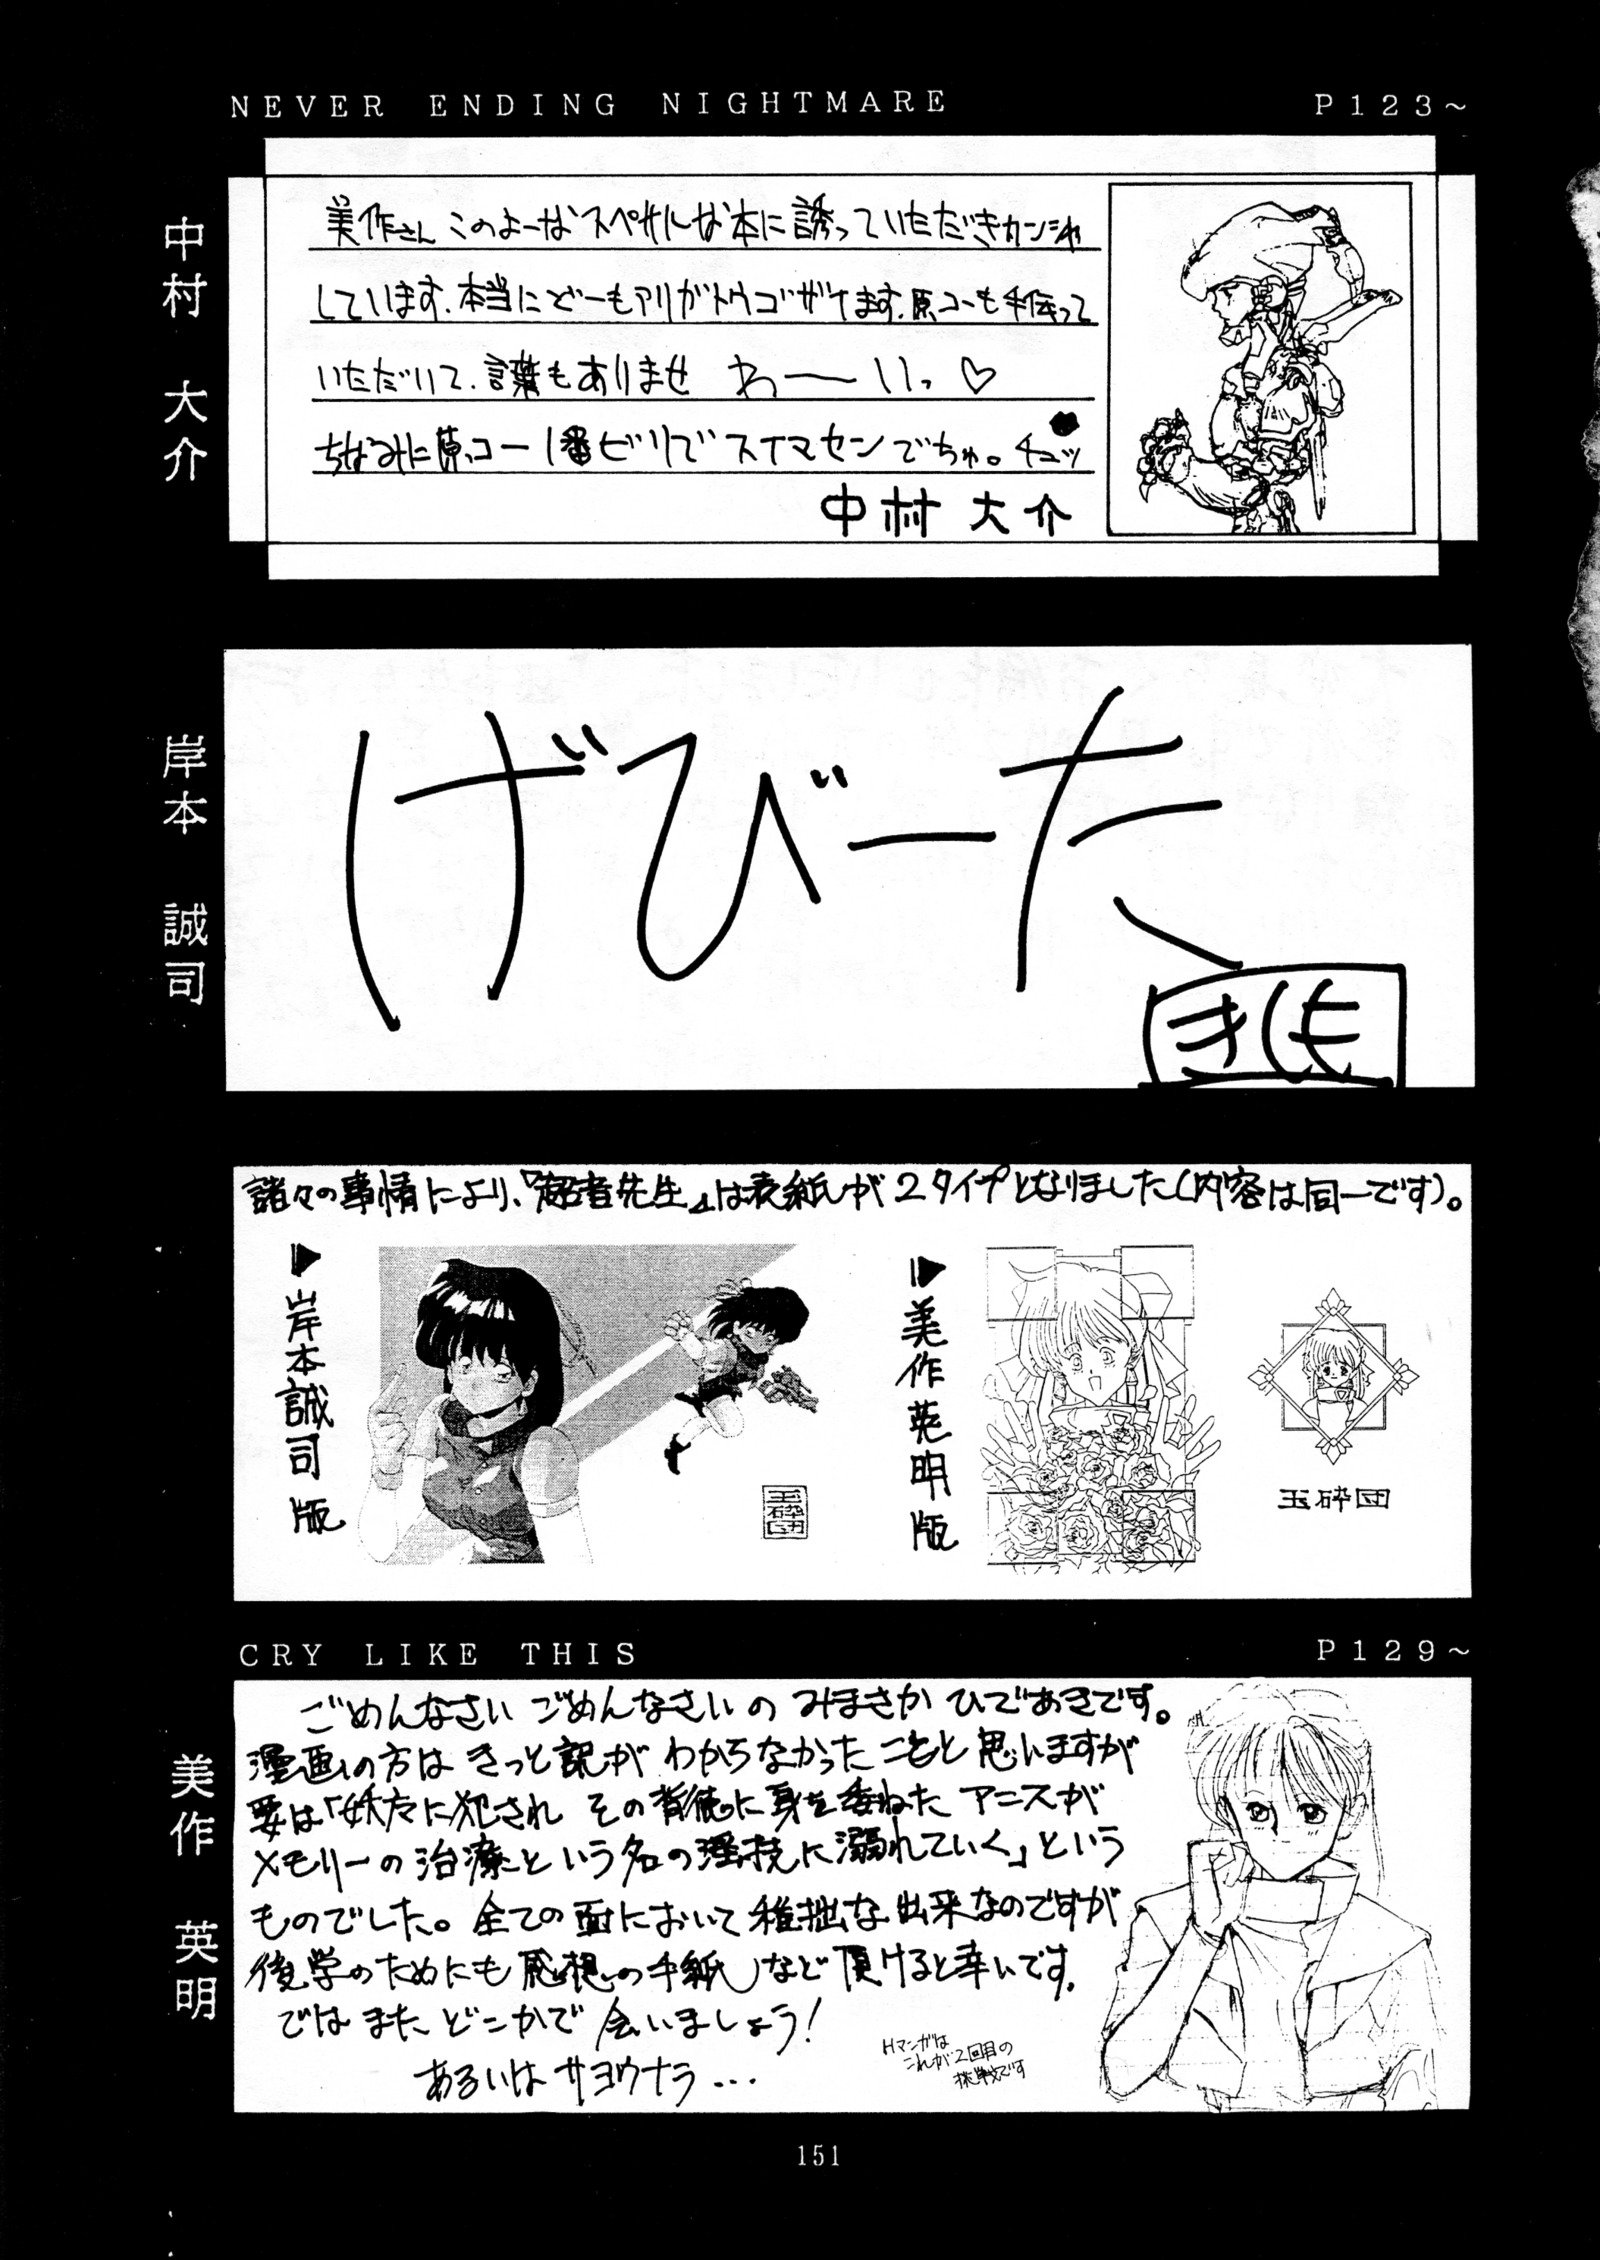 NEVER ENDING NIGHTMARE P123～
中村 大介
美作さん このよーな スペサルな 本に 誘っていただきカンシャ
しています。本当にどーもアリガトウゴザイます。原コーも手伝って
いただいて、言葉もありませ わーーいっ♡
ちなみに原コー1番ビリでスイマセンでちゅ。チュッ
中村 大介
岸本 誠司
げびーた
きしも
諸々の事情により、『超音先生』は表紙が2タイプとなりました(内容は同一です)。
▶岸本誠司版
玉砕団
▶美作英明版
玉砕団
CRY LIKE THIS P129～
美作 英明
ごめんなさい ごめんなさいの みまさか ひであきです。
漫画の方は きっと訳が わからなかったことと思いますが
要は「妖魔に犯され その背徳に身を委ねた アニスが
メモリーの治療という名の淫技に溺れていく」という
ものでした。全ての面において稚拙な出来なのですが
後学のためにも感想の手紙など頂けると幸いです。
ではまた どこかで 会いましょう!
あるいは サヨウナラ…
Hマンガは
これが2回目の
挑戦です
151